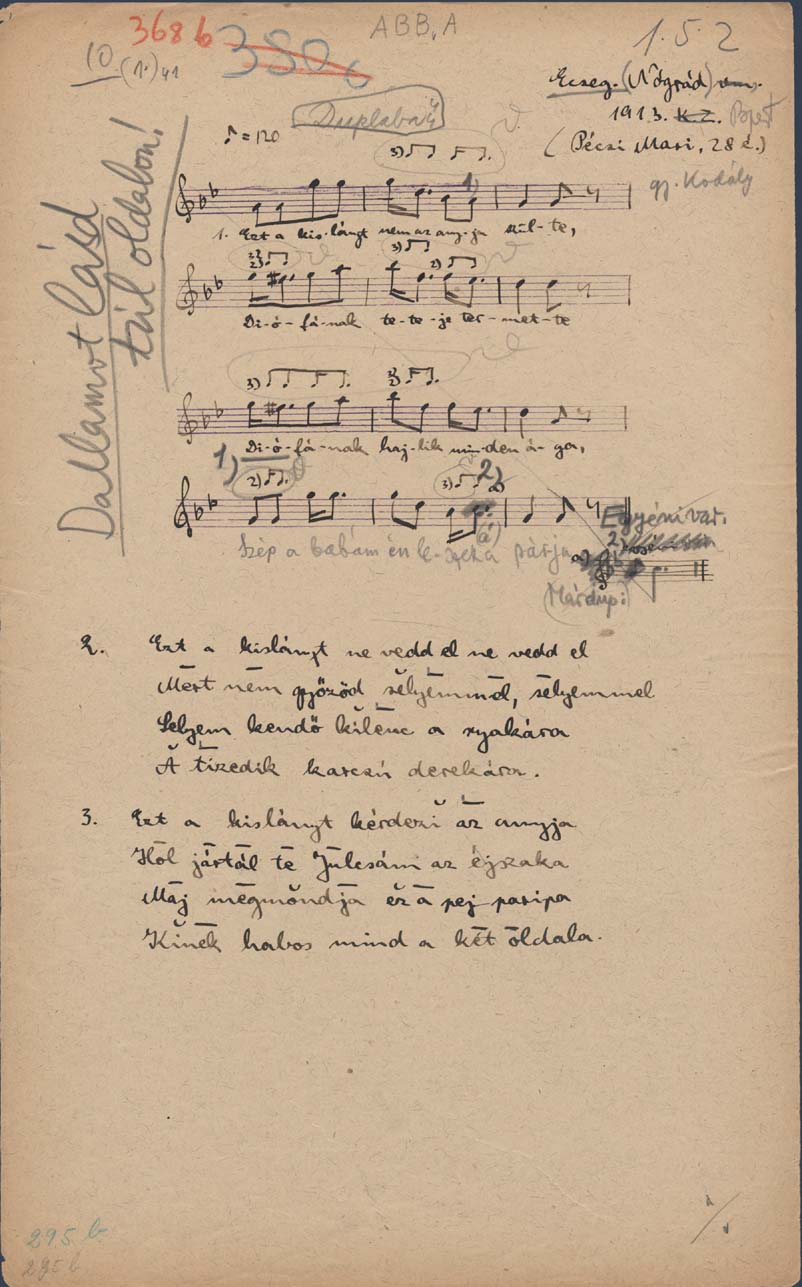 368 b
380
ABB,A
1.5.2
10
(1.)41
Ecseg. (Nógrád) vm.
1913. K.Z.
(Péczi Mari, 28 é.)
gy. Kodály
♪ = 120
Dallamot lásd
túl oldalon!
3)
1)
1. Ezt a kis-lányt nem az any-ja szül-te,
2)
3)
2)
Di-ó-fá-nak te-te-je ter-met-te
3)
Di-ó-fá-nak haj-lik min-den á-ga,
1)
2)
3)
2)
Szép a babám én le-szek a párja
Egyéni var.
2)
a)
2. Ezt a kislányt ne vedd el ne vedd el
Mert nem győzöd selyemmel, selyemmel
Selyem kendő kilenc a nyakára
A tizedik karcsú derekára.
3. Ezt a kislányt kérdezi az anyja
Hol jártál te Julcsám az éjszaka
Maj megmondja ez a pej paripa
Kinek habos mind a két oldala.
295 b
295 b